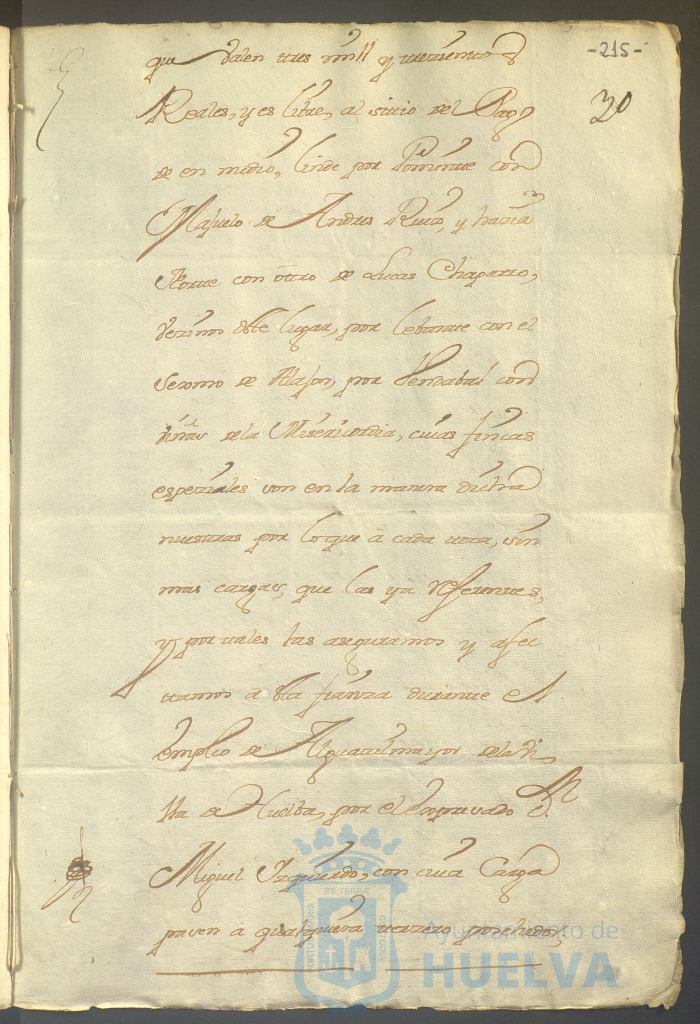 -215-
20
que valen tres mill y trezientos
Reales, y es libre, al sittio del Pago
de en medio, linde por Poniente con
Majuelo de Andres Ruiz, y hazia
Norte con otro de Lucas Chaparro,
vezinos deste lugar, por lebante con el
de, por Vendabal con
viñas de la Misericordia, cuias fincas
espeziales son en la manera dicha
nuestras por lo que à cada uno toca, sin
mas cargas, que las ya referentes,
y por tales las aseguramos y afec
tamos à esta fianza durante el
empleo de Alguazil mayor de la Vi
lla de Huelba, por el expresado Dn.
Miguel Izquierdo, con cuia Carga
pasen a qualquiera terzero posehedor,
Ayuntamiento de
HUELVA